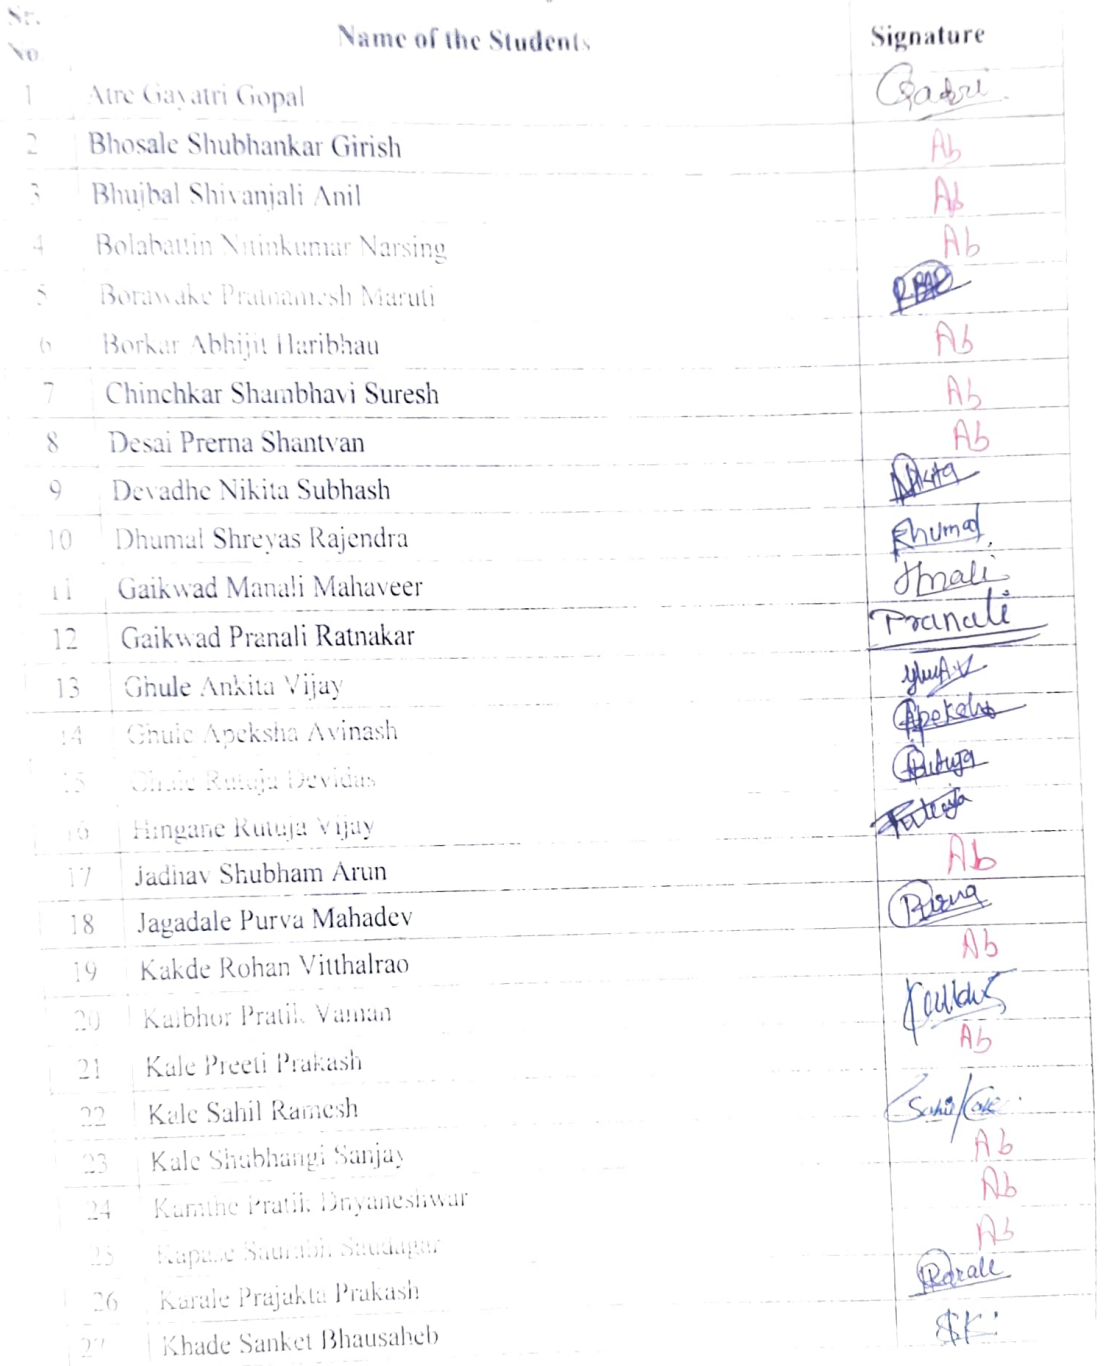 Sr. No Name of the Students Signature
1 Atre Gayatri Gopal
2 Bhosale Shubhankar Girish Ab
3 Bhujbal Shivanjali Anil Ab
4 Bolabattin Nitinkumar Narsing Ab
5 Borawake Prathamesh Maruti
6 Borkar Abhijit Haribhau Ab
7 Chinchkar Shambhavi Suresh Ab
8 Desai Prerna Shantvan Ab
9 Devadhe Nikita Subhash Nikita
10 Dhumal Shreyas Rajendra
11 Gaikwad Manali Mahaveer
12 Gaikwad Pranali Ratnakar Pranali
13 Ghule Ankita Vijay
14 Ghule Apeksha Avinash Apeksha
15 Ghule Rutuja Devidas Rutuja
16 Hingane Rutuja Vijay
17 Jadhav Shubham Arun Ab
18 Jagadale Purva Mahadev
19 Kakde Rohan Vitthalrao Ab
20 Kalbhor Pratik Vaman
21 Kale Preeti Prakash Ab
22 Kale Sahil Ramesh Sahil Kale
23 Kale Shubhangi Sanjay Ab
24 Kamthe Pratik Dnyaneshwar Ab
25 Kapase Saurabh Saudagar Ab
26 Karale Prajakta Prakash
27 Khade Sanket Bhausaheb